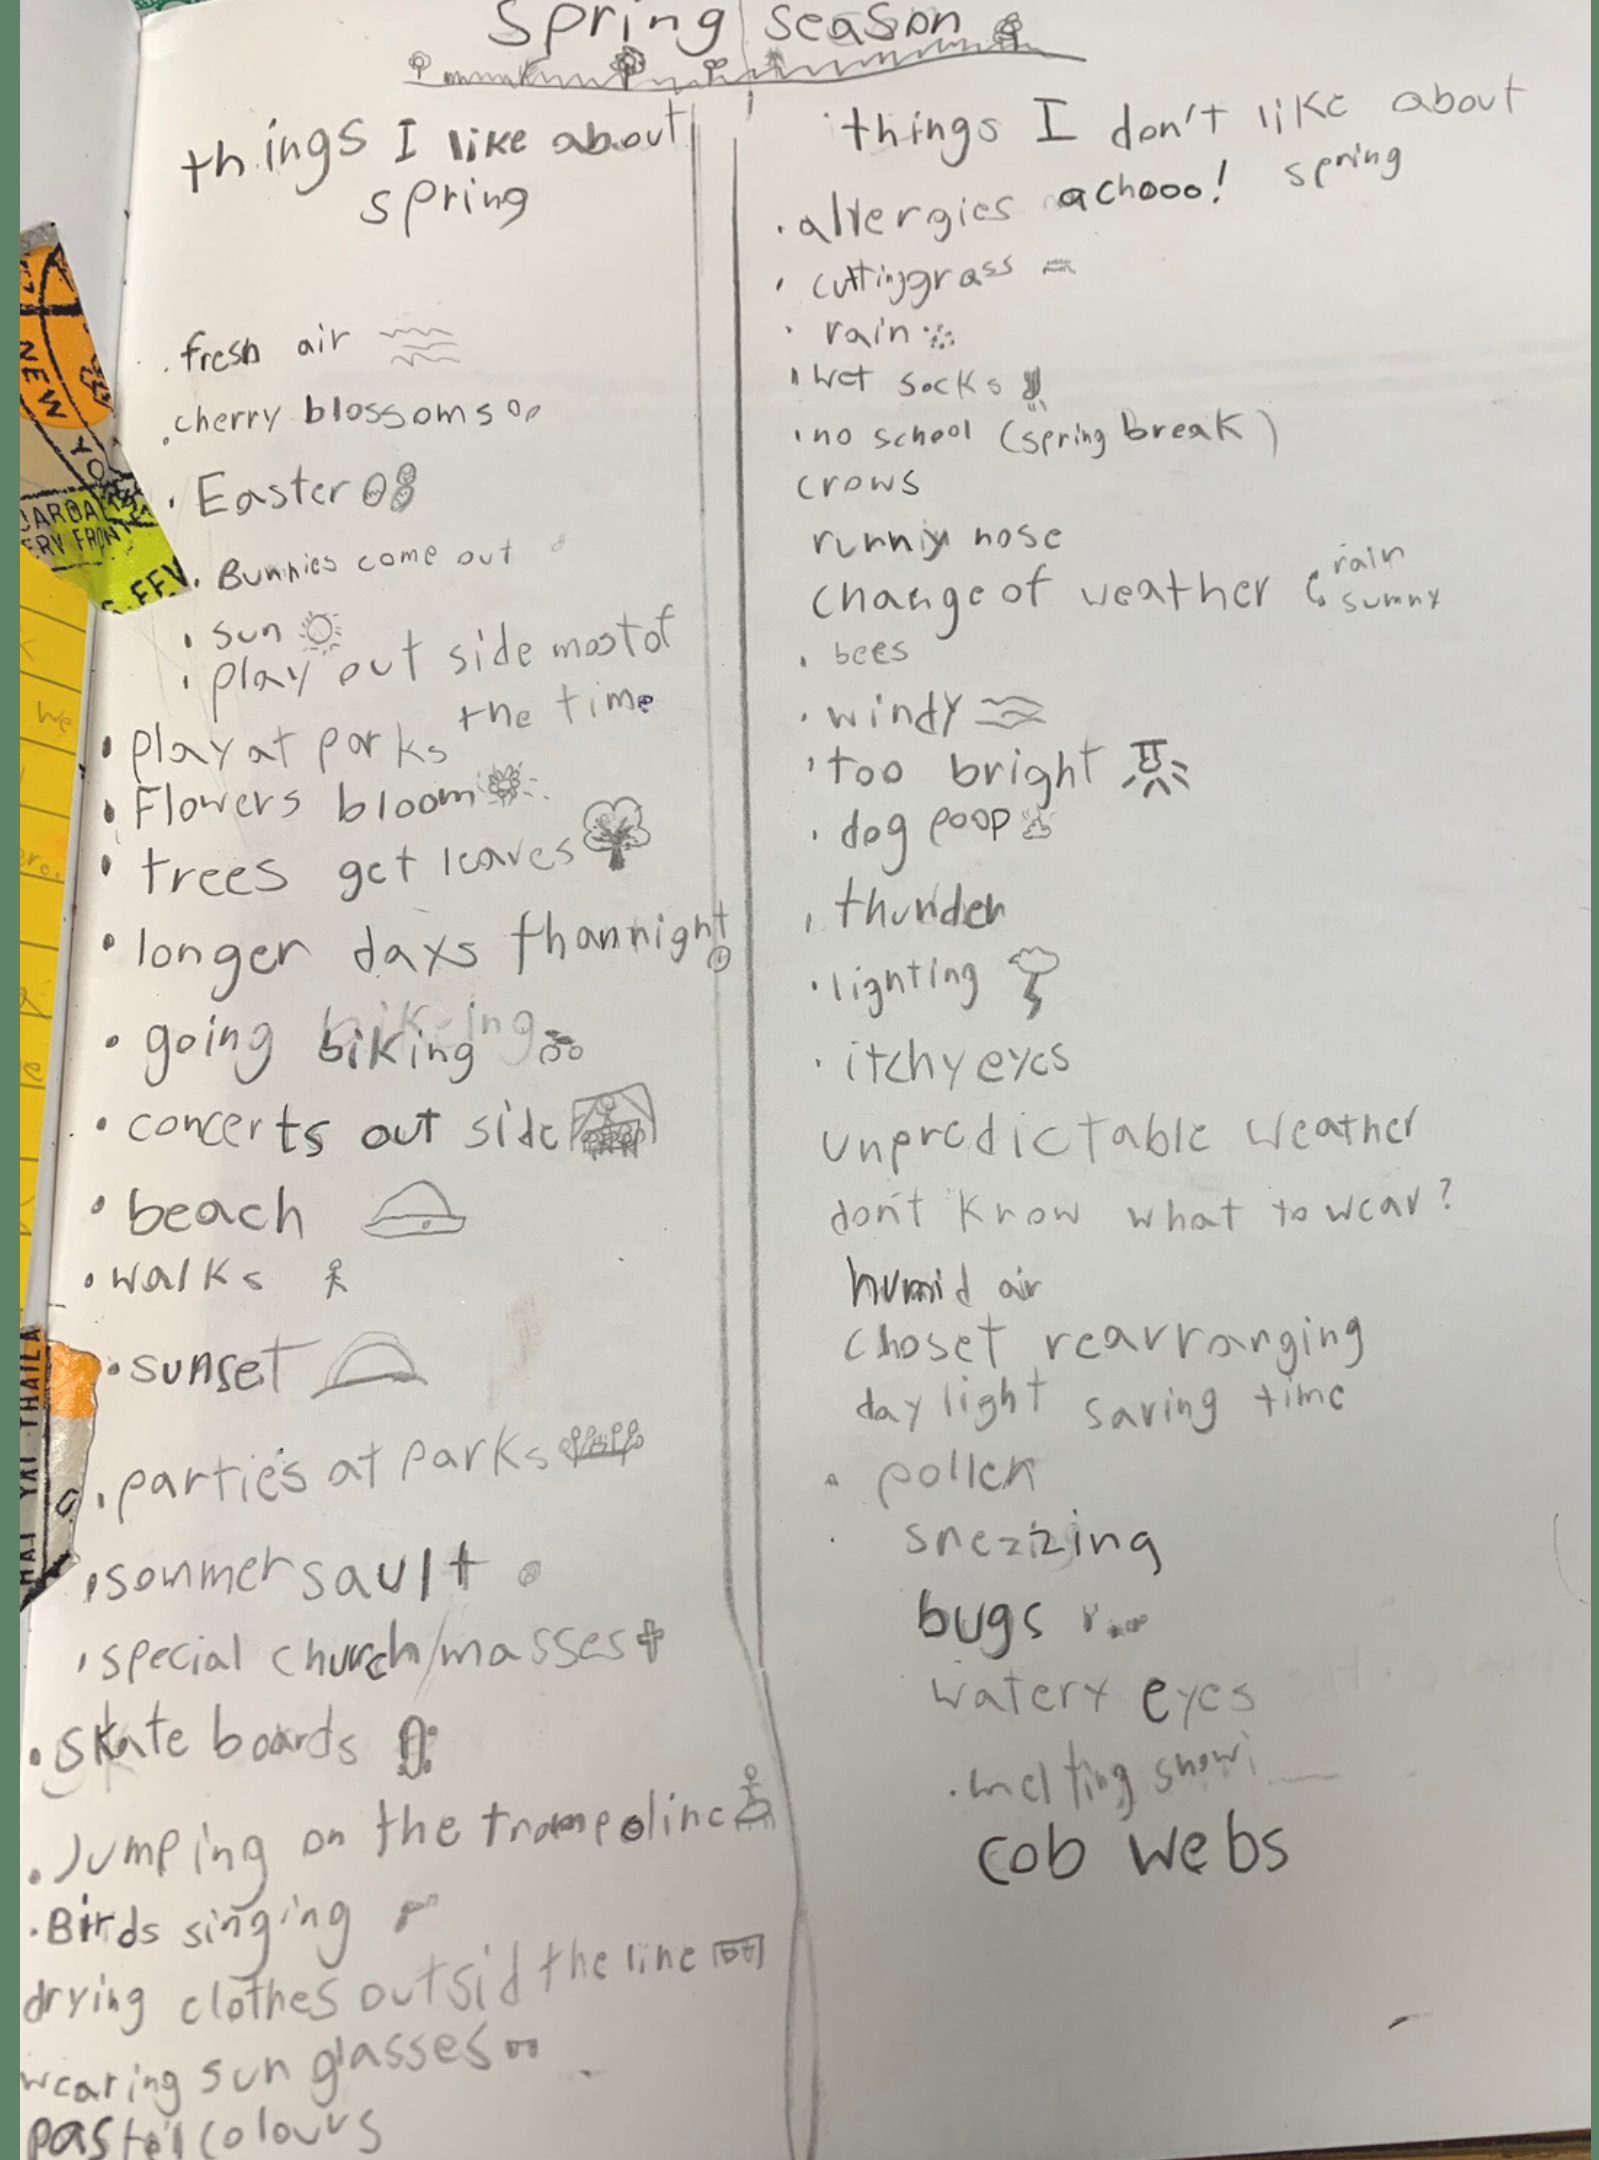 spring season
things I like about
spring
. fresh air
. cherry blossoms
. Easter
. Bunnies come out
. sun
. play out side most of
the time
. play at parks
. Flowers bloom
. trees get leaves
. longer days than night
. going biking
. concerts out side
. beach
. walks
. sunset
. parties at parks
. sommer sault
. special church/masses
. skate boards
. Jumping on the trampoline
. Birds singing
drying clothes outsid the line
wearing sun glasses
pastel colours
things I don't like about
spring
. allergies achooo!
. cutting grass
. rain
. wet socks
. no school (spring break)
crows
runny nose
change of weather rain
sunny
. bees
. windy
. too bright
. dog poop
. thunder
. lighting
. itchy eyes
unpredictable weather
don't know what to wear?
humid air
choset rearranging
day light saving time
. pollen
. snezzing
bugs
watery eyes
. melting snow
cob webs
NEW
YO
THAILA
HAT YAI
We
ere.